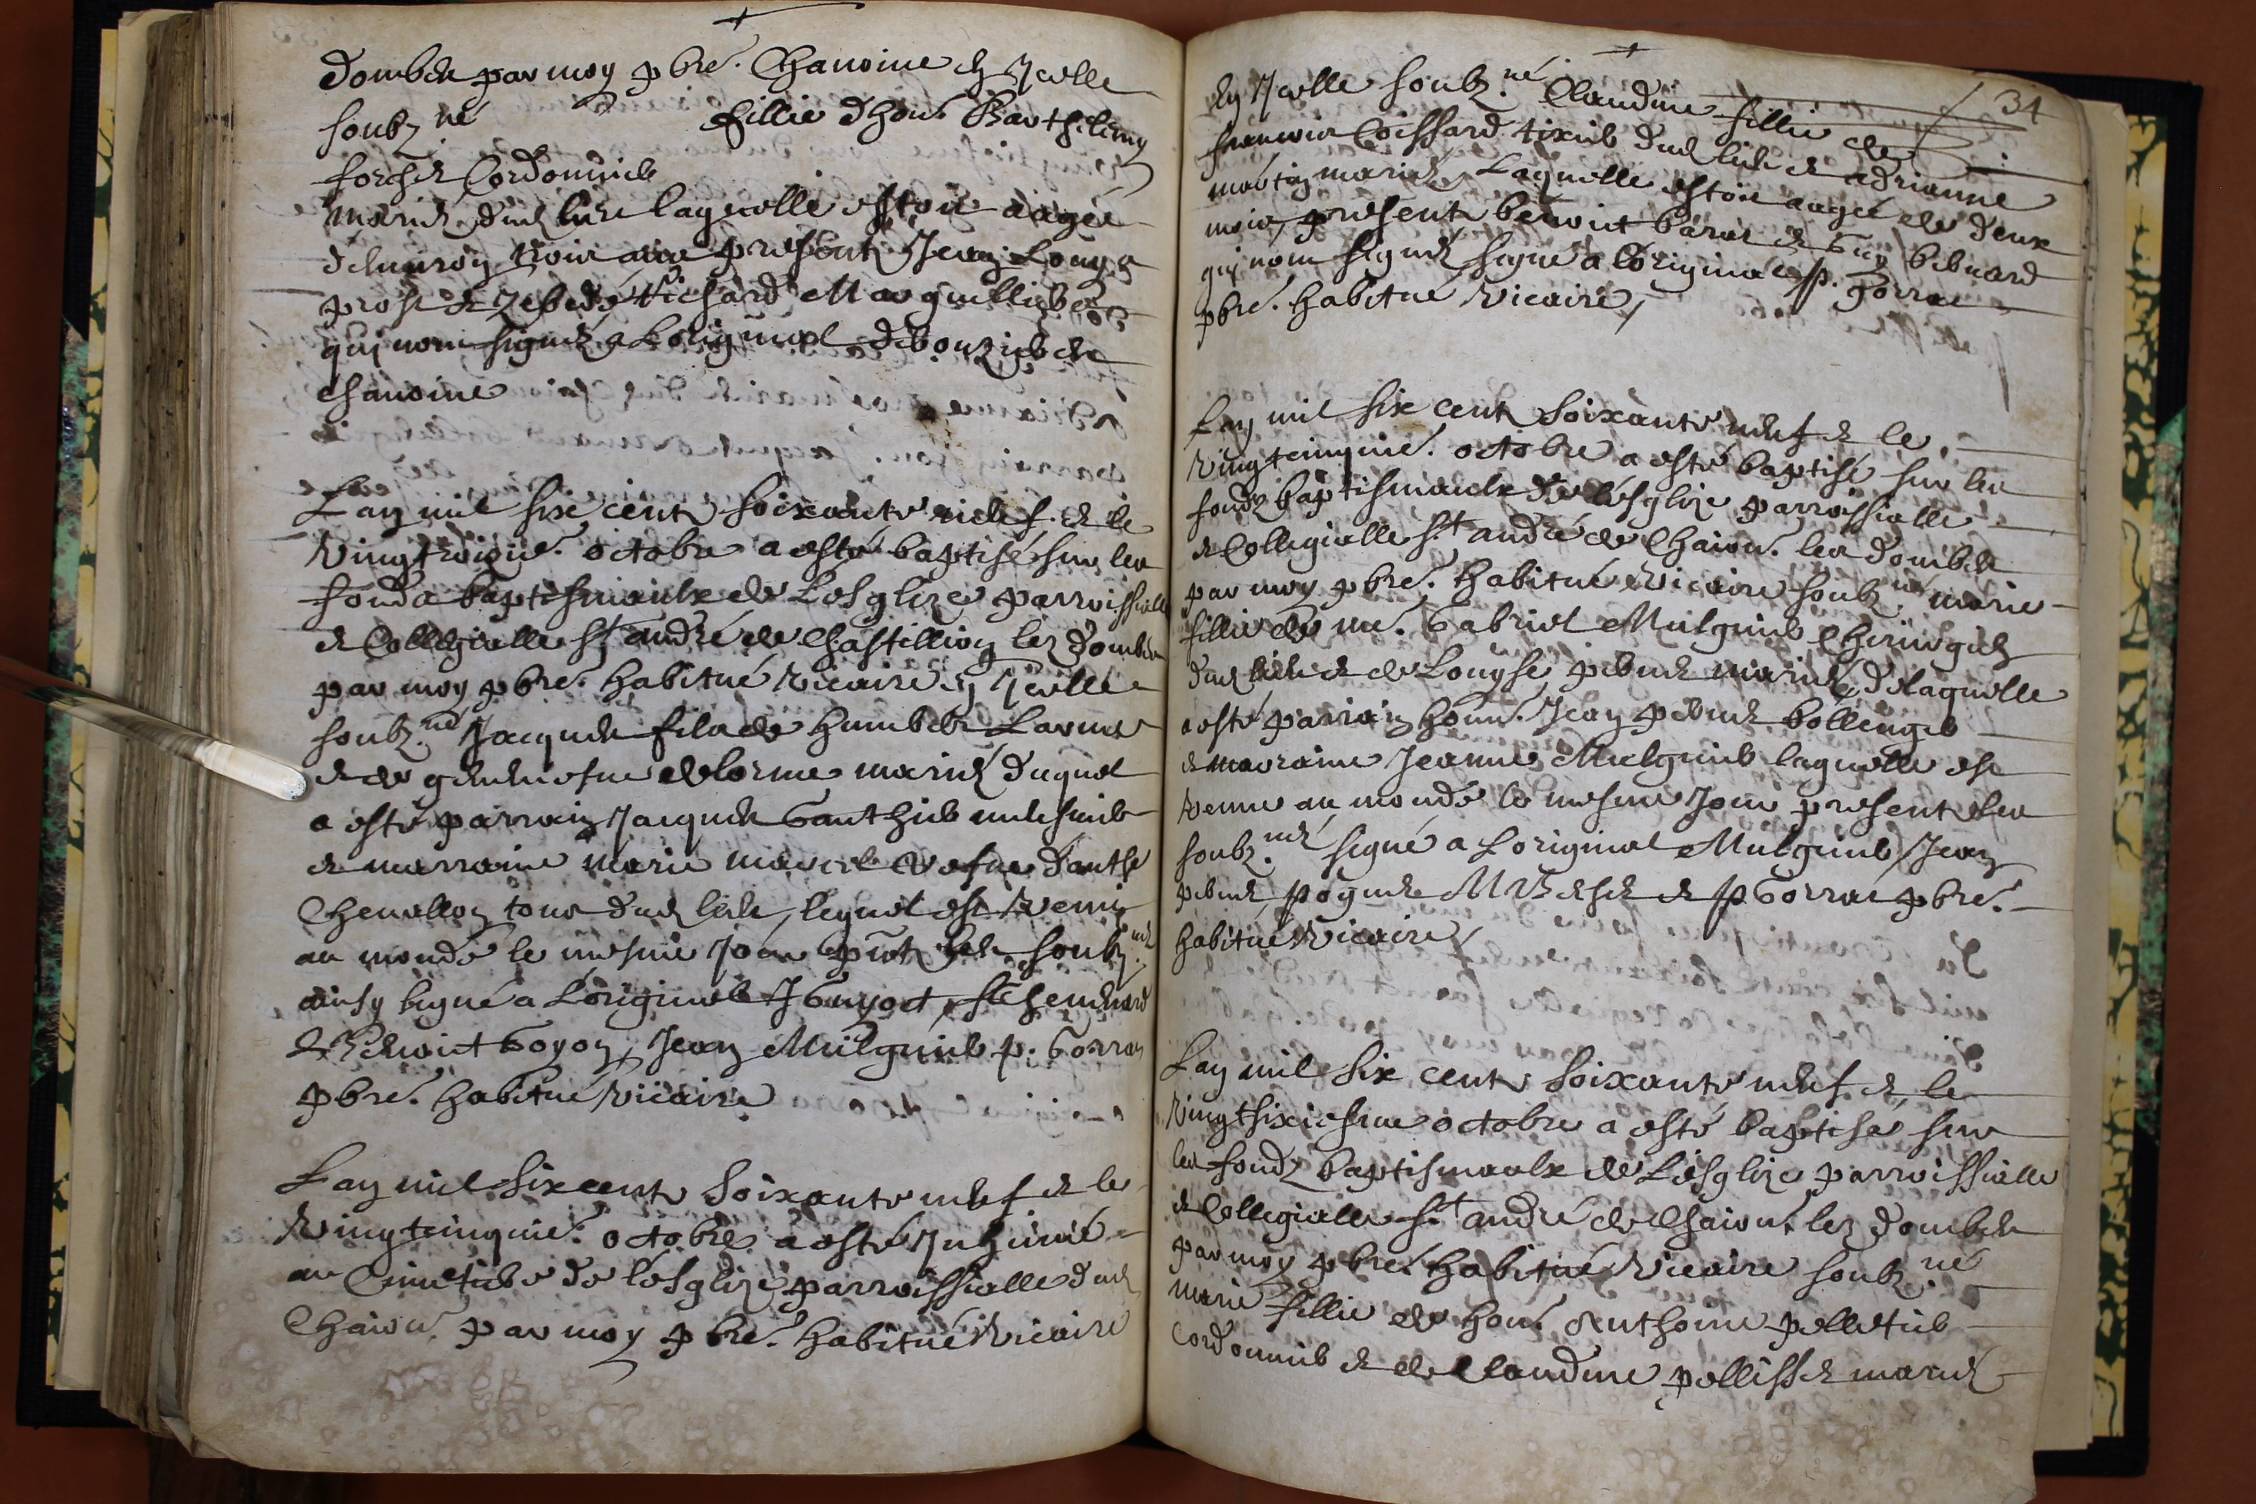 dombes par moy pbre. Chanoine en Icelle
soubz.né fillie dhon. Barthelemy
forest Cordonnier
mariés dud lieu laquelle estoit aagée
denviron trois ans presents Jean Louys
prost et Zebedé Richard Marguilliers
qui nont signés a Loriginal debouzies
chanoine
Lan mil six cents soixante neuf et le
Vingtroisie. octobre a esté baptisé sur les
fonds baptismaulx de Lesglize parroissialle
et Collegialle St andré de Chastillion lez dombes
par moy pbre. habitué Vicaire en Icelle
soubz.né Jacques fils de humbert
et de geneviesve delorme mariés duquel
a esté parrain Jacques Gauthier
et marraine marie vefve danthe
Chevallon tous dud lieu, lequel est Venu
au monde le mesme Jour pnts les soubz.nés
ainsy signé a Loriginal J Guyot,
et Benoict Goyon, Jean Mulguier p. Gorras
pbre. habitué Vicaire
Lan mil six cents soixante neuf et le
Vingtcinquie. octobre a esté Inhumé
au Cimetiere de lesglize parroissialle dud
Chaion. par moy pbre. habitué Vicaire
34
en Icelle soubz.né Claudine fillie de
francois Coissard tixier dud lieu et adrianne
martin mariés Laquelle estoit aagée de deux
mois, presents benoict baras et Guy benard
qui nont signés signé a Loriginal p. Gorras
pbre. habitué Vicaire,
Lan mil six cents soixante neuf et le
Vingtcinquie. octobre a esté baptisé sur les
fondz baptismaulx de lesglize parroissialle
et Collegialle St andré de Chaion. lez dombes
par moy pbre. habitué Vicaire soubz.né marie
fillie de me. Gabriel Mulguier Chirurgien
dud lieu et de Louyse pebuet mariés, delaquelle
a esté parrain honn. Jean pebuet bollenger
et marraine Jeanne Mulguier laquelle est
Venue au monde le mesme Jour presents les
soubz.nés signé a Loriginal Mulguier, Jean
pebuet, et p Gorras pbre.
habitué Vicaire,
Lan mil six cents soixante neuf et le
Vingtsixiesme octobre a esté baptisée sur
les fondz baptismaulx de Lesglize parroissialle
et Collegialle St andré de Chaion. lez dombes
par moy pbre. habitué Vicaire soubz.né
marie fillie de hon. Anthoine pelletier
Cordonnier et de Claudine pellisset mariés